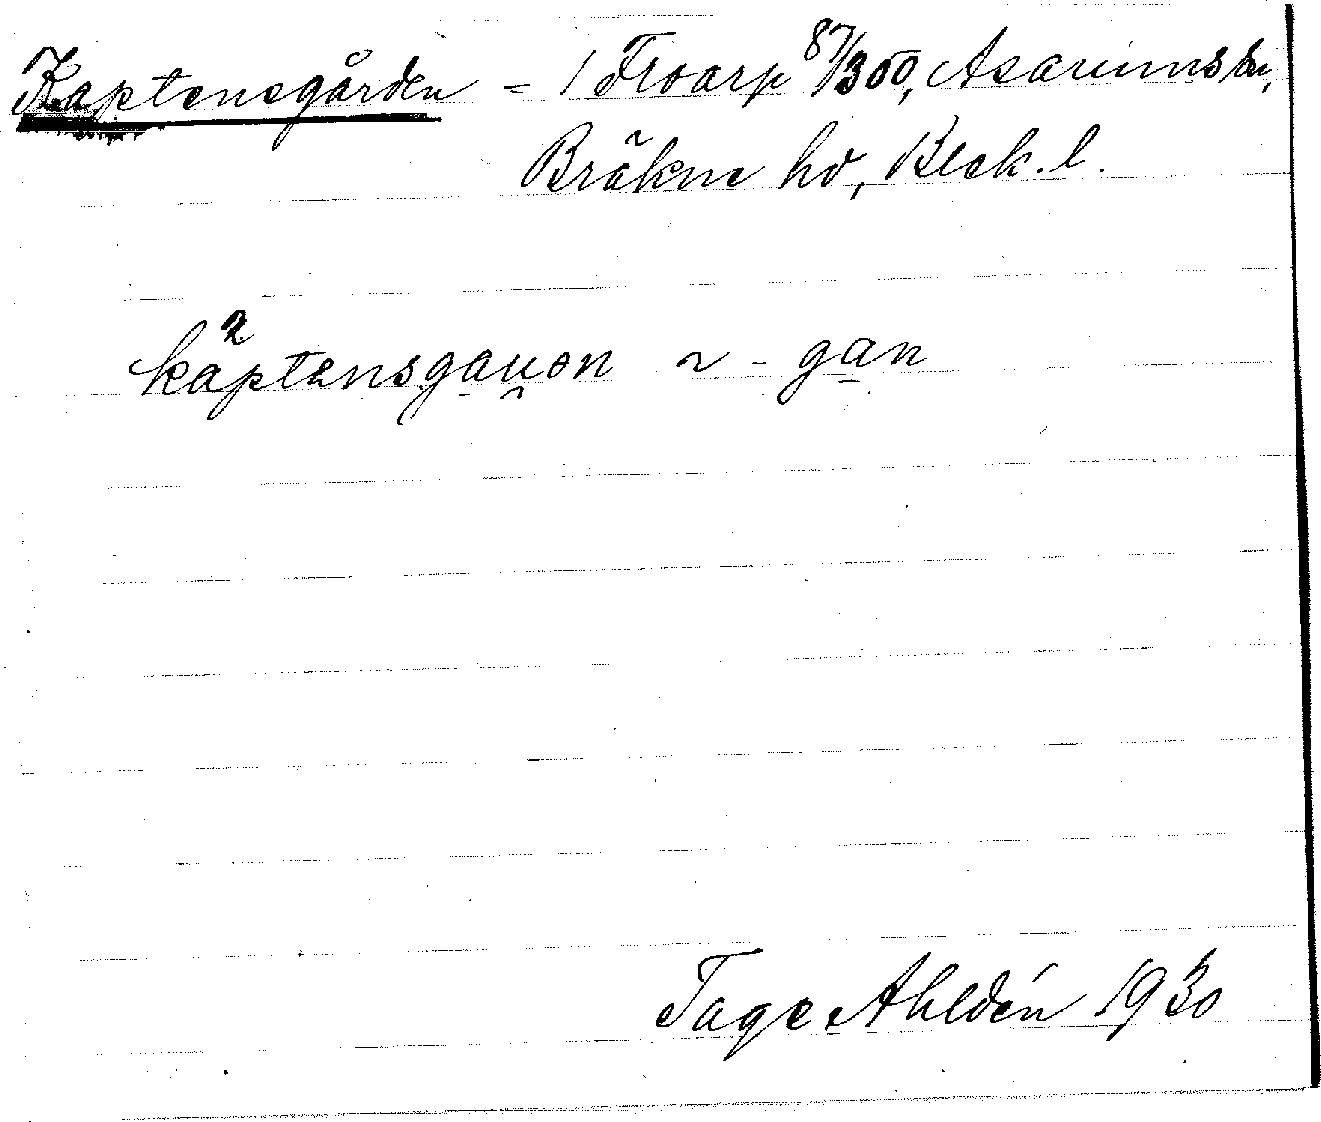 Kaptensgården = 1 Froarp 87/360, Asarums sn,
Bräkne hd, Blek. l.
kaptensgauen ~ - gan
Tage Ahldén 1930